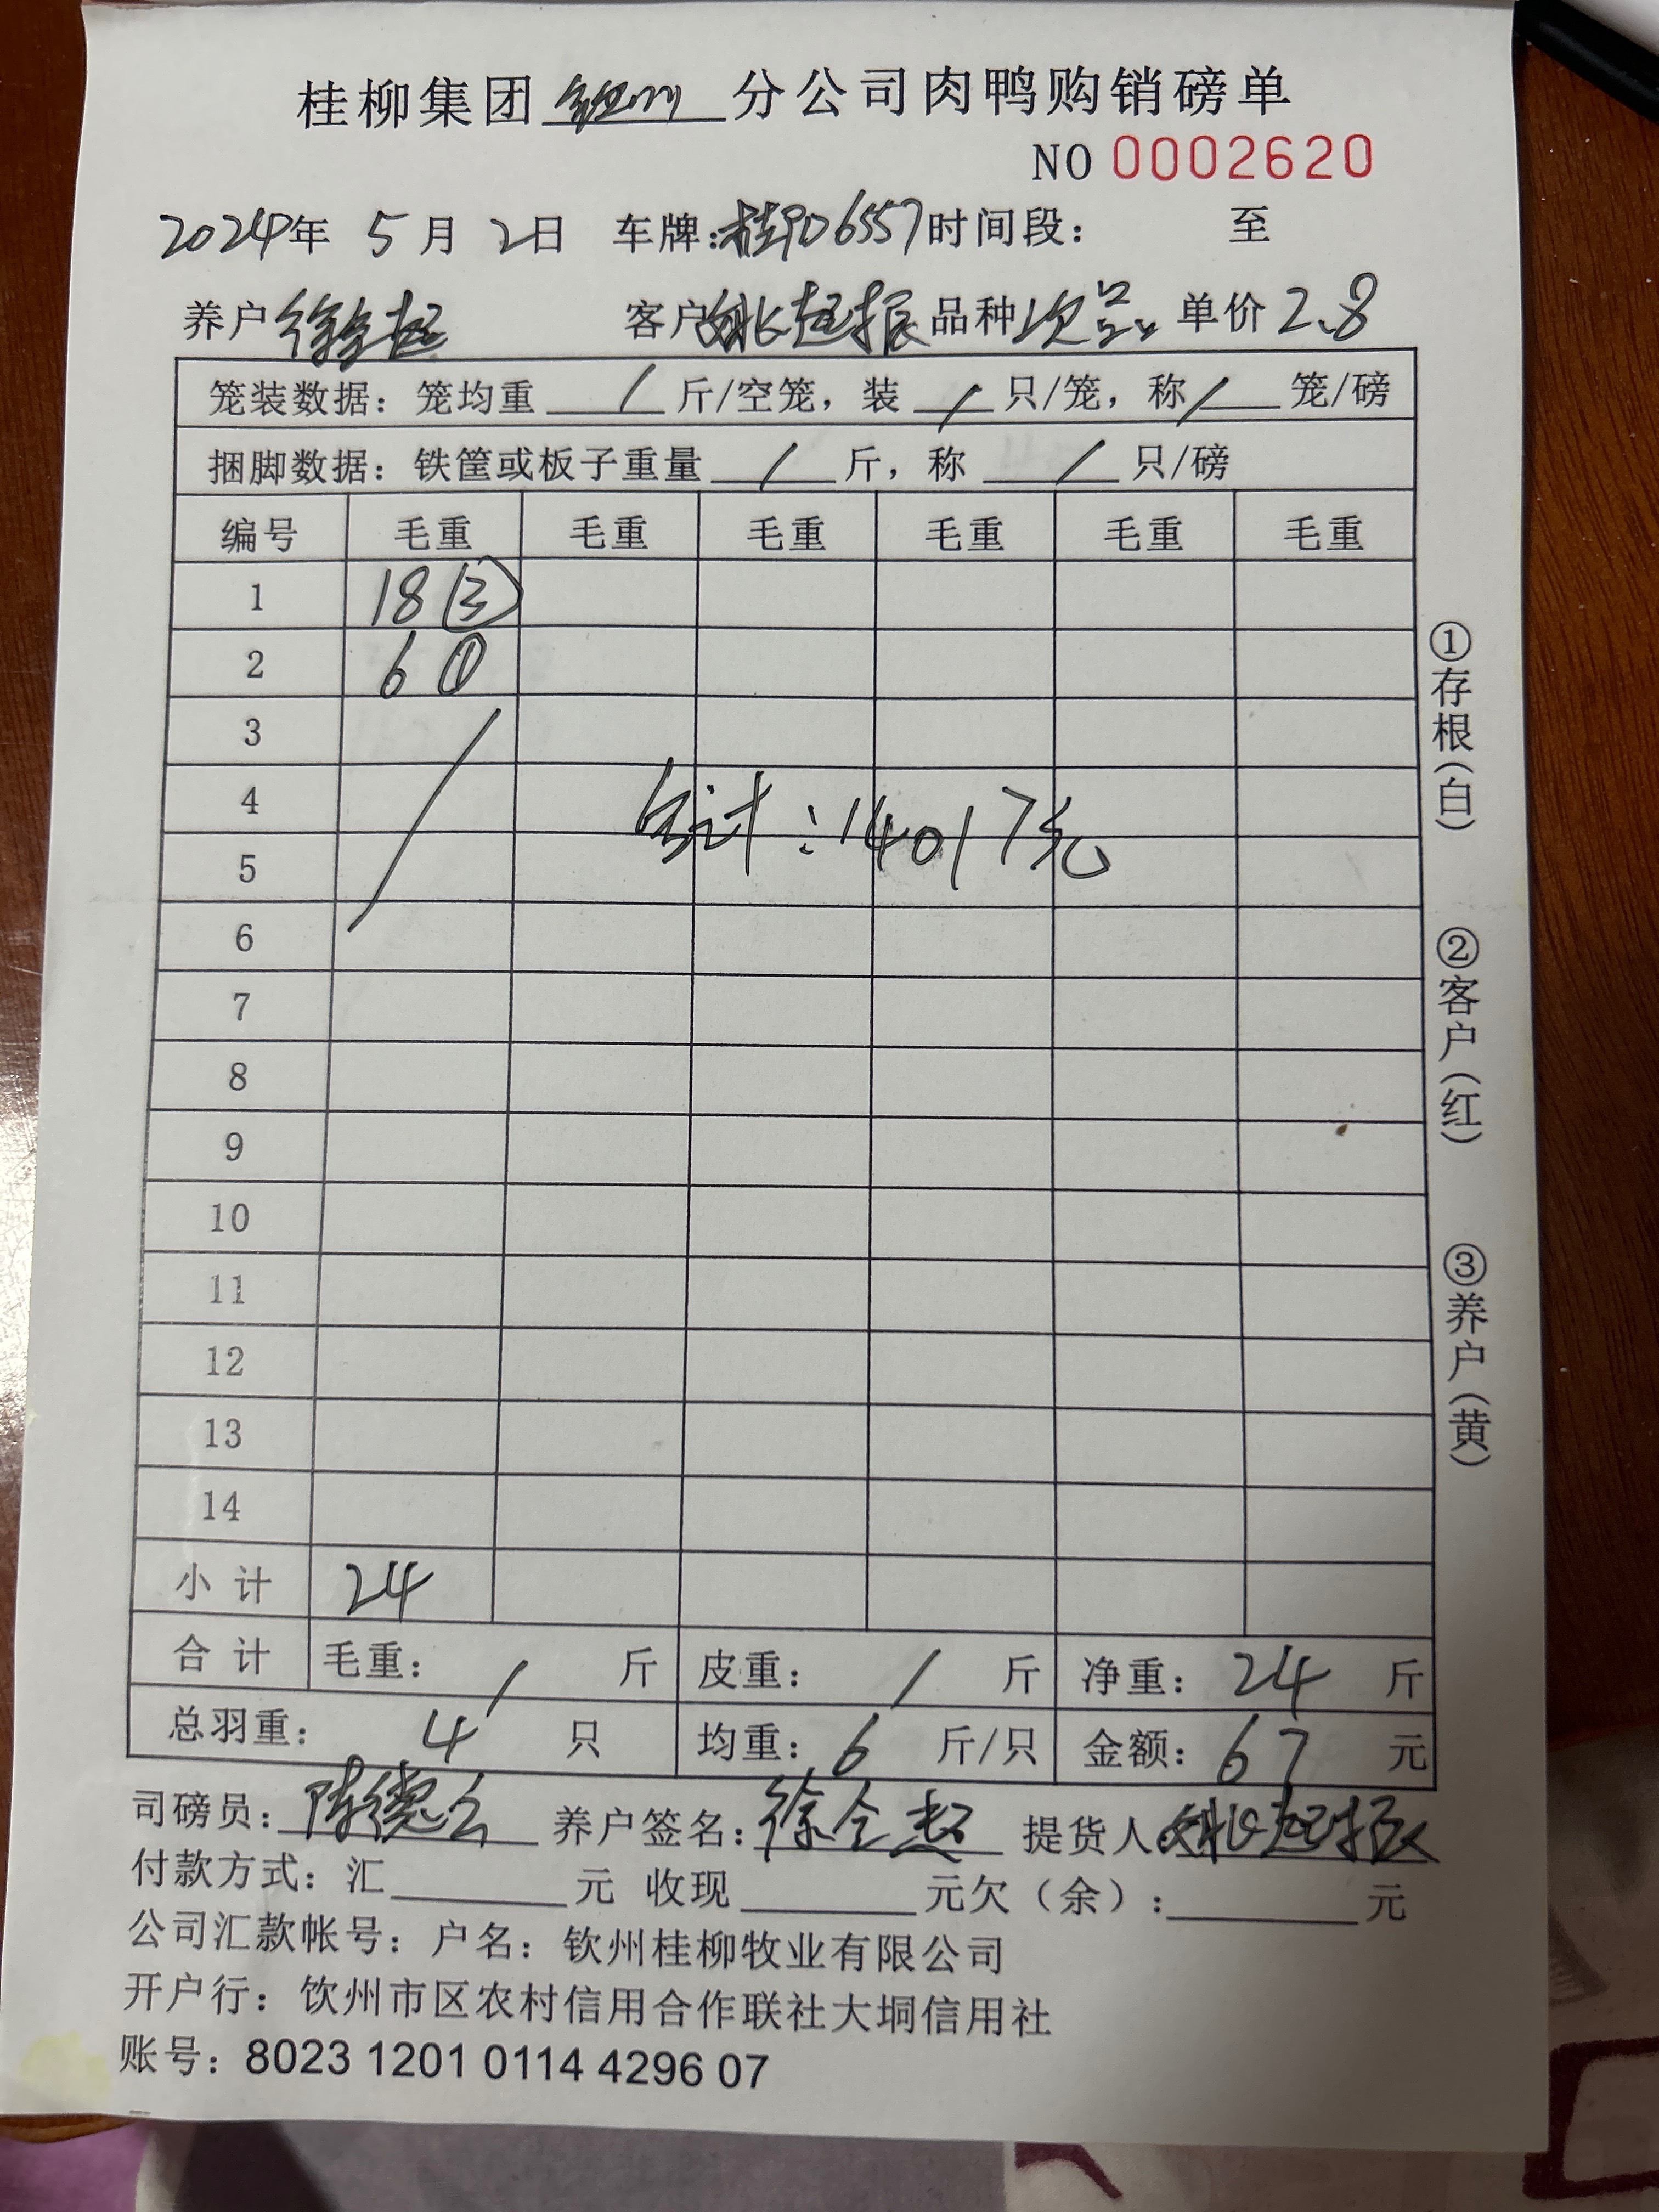 桂柳集团钦州分公司肉鸭购销磅单
NO 0002620
2024年 5月 2日 车牌:桂PD6557 时间段: 至
养户 徐全超 客户 姚超振 品种 次品 单价 2.8
笼装数据: 笼均重 / 斤/空笼, 装 / 只/笼, 称 / 笼/磅
捆脚数据: 铁筐或板子重量 / 斤, 称 / 只/磅
编号 毛重 毛重 毛重 毛重 毛重 毛重
1 18 ③
2 6 ①
3
4
合计:14017元
5
6
7
8
9
10
11
12
13
14
小计 24
合计 毛重: / 斤 皮重: / 斤 净重: 24 斤
总羽重: 4 只 均重: 6 斤/只 金额: 67 元
司磅员: 陈德云 养户签名: 徐全超 提货人 姚超振
付款方式: 汇 元 收现 元欠(余): 元
公司汇款帐号: 户名: 钦州桂柳牧业有限公司
开户行: 钦州市区农村信用合作联社大垌信用社
账号: 8023 1201 0114 4296 07
①存根(白)
②客户(红)
③养户(黄)